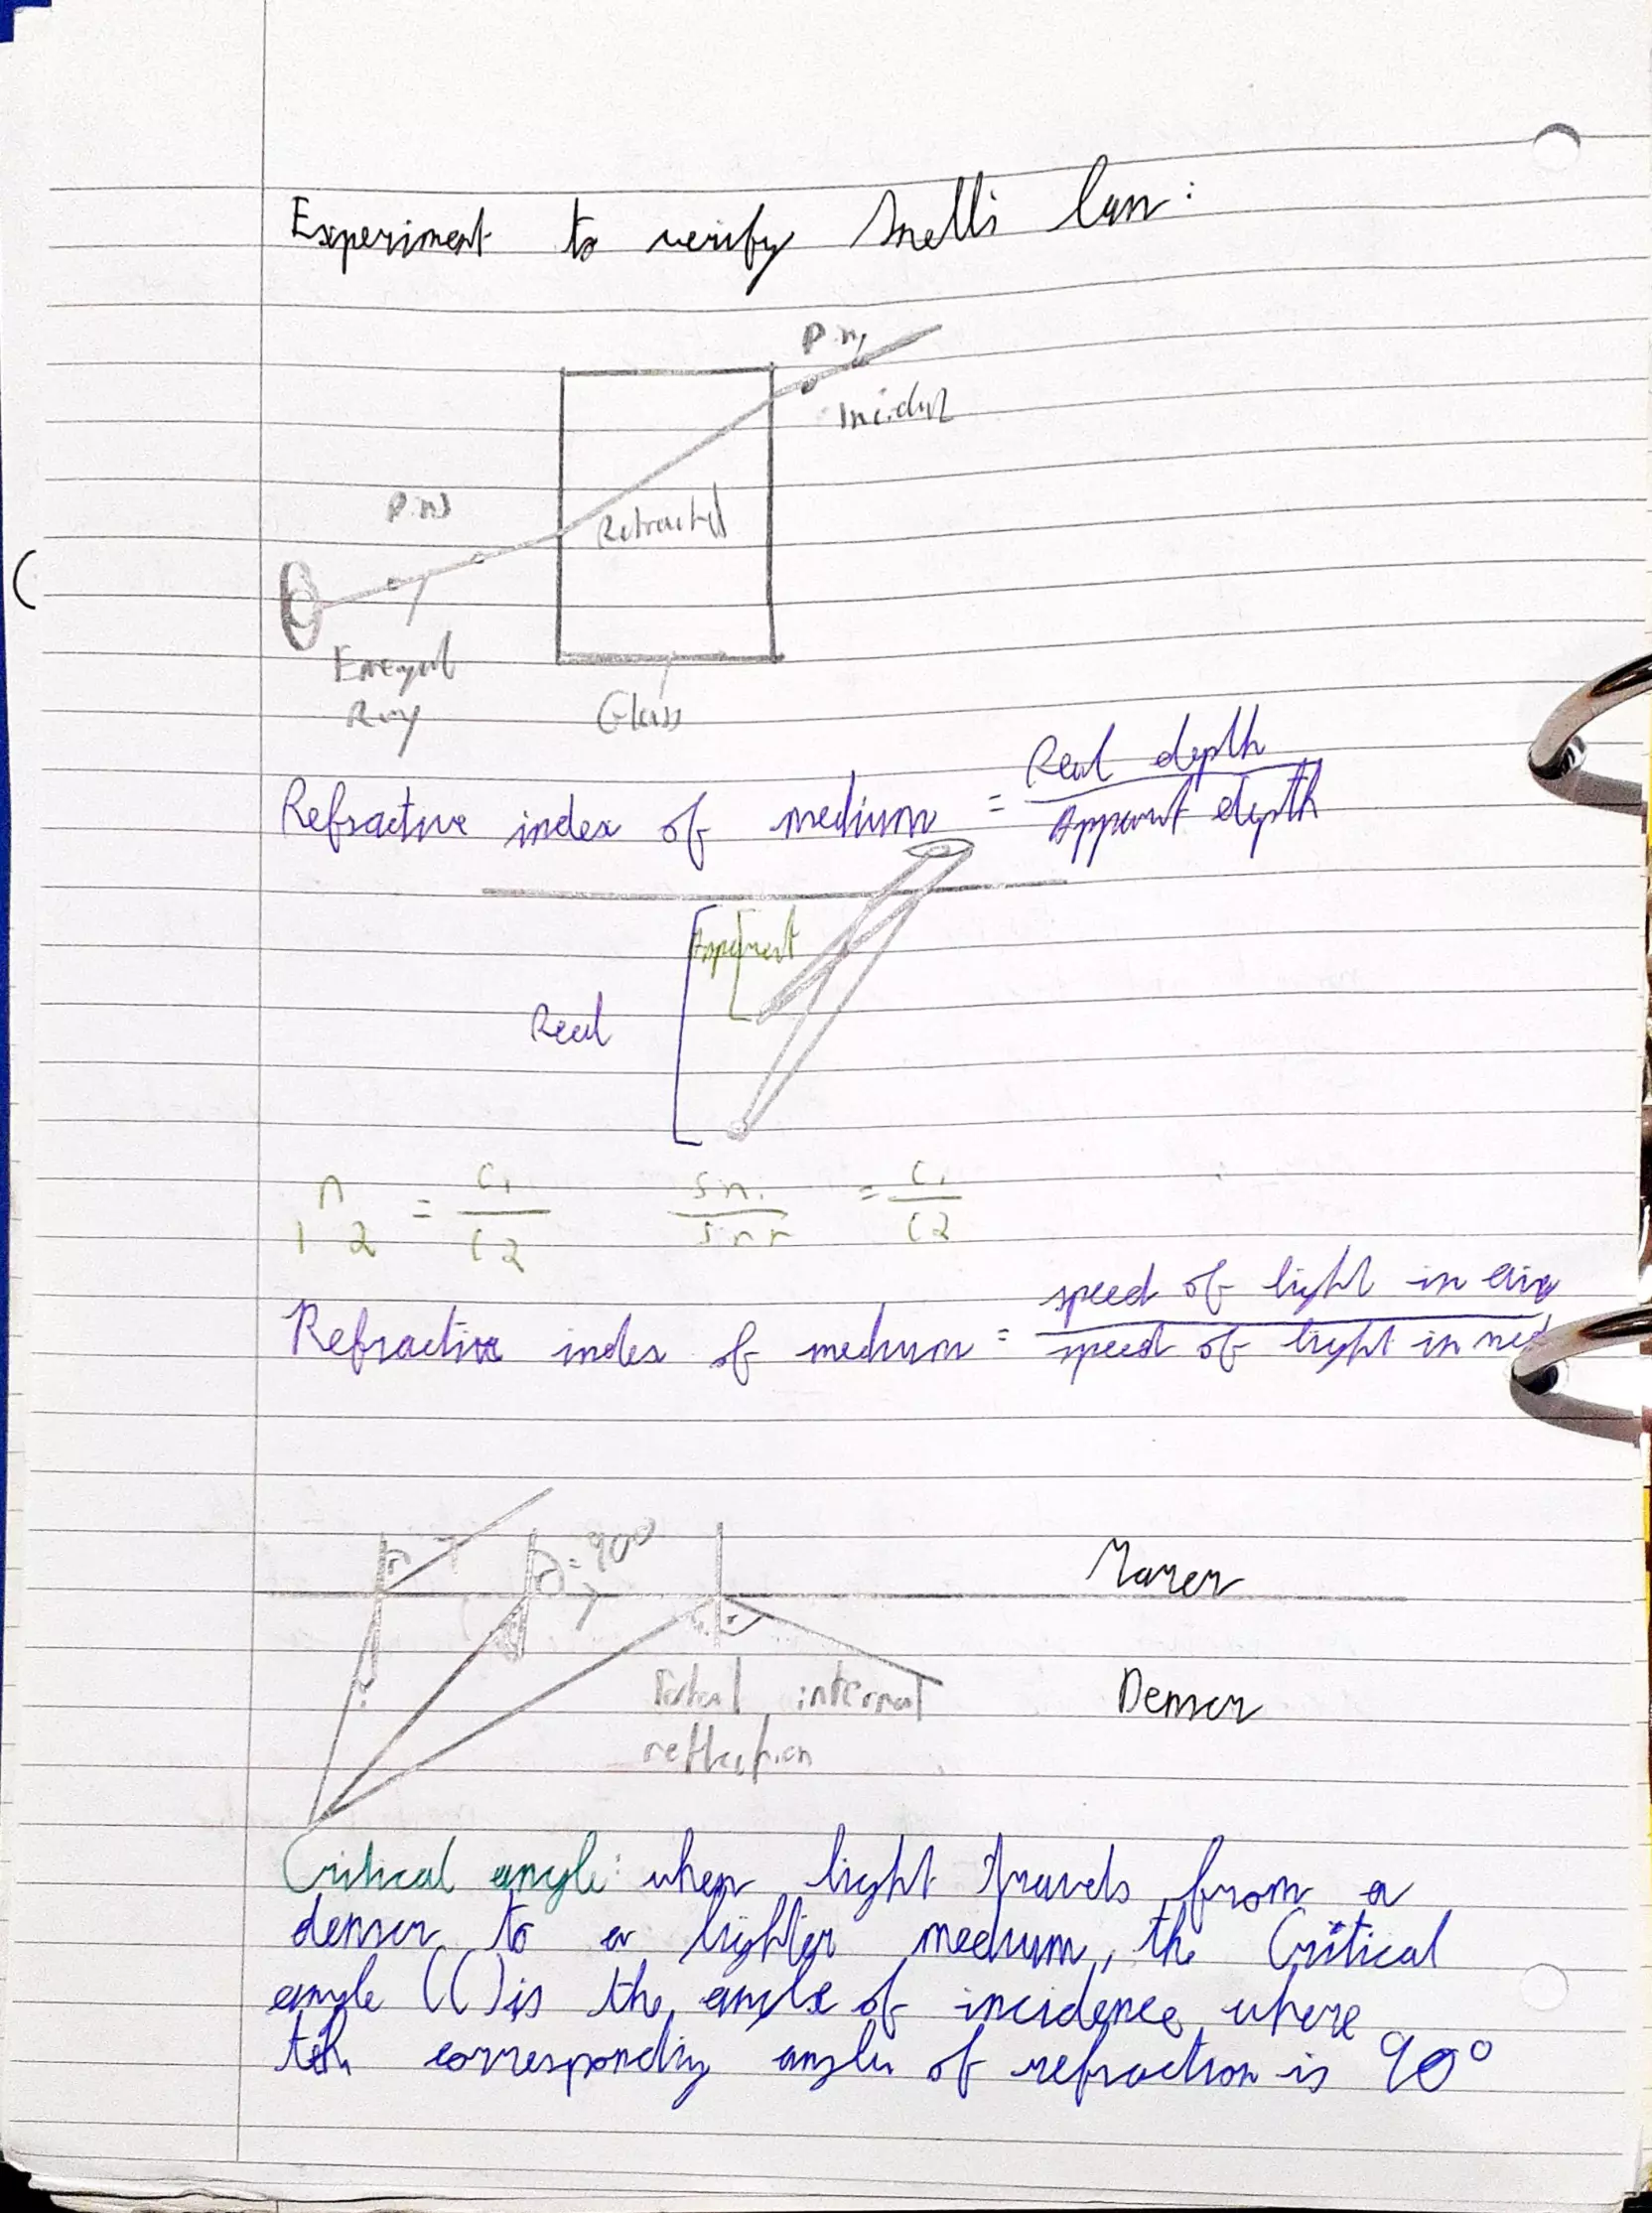 Experiment to verify Snell's law:
Pins
Incident
Pins
Refracted
Emergent
Ray
Glass
Refractive index of medium = Real depth / Apparent depth
Apparent
Real
1 n 2 = C1 / C2   Sin i / Sin r = C1 / C2
Refractive index of medium = speed of light in air / speed of light in med
r = 90°
Rarer
Denser
Total internal
reflection
Critical angle: when light travels from a
denser to a lighter medium, the Critical
angle (C) is the angle of incidence where
the corresponding angle of refraction is 90°